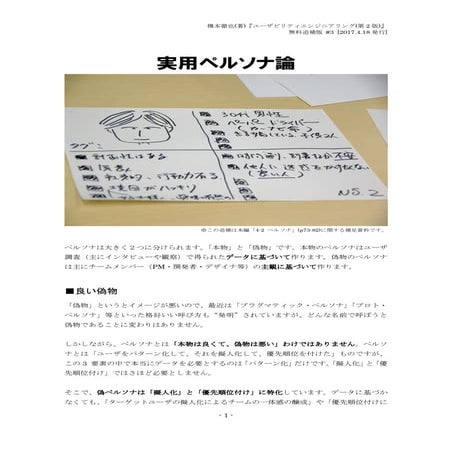 橋本徹也(著)『ユーザビリティエンジニアリング(第2版)』
無料追補版 #3 [2017.4.18 発行]
実用ペルソナ論
30代 男性
ペーパードライバー
タグ:
No 2
※この追補は本編「4-2 ペルソナ」(p73-82)に関する補足資料です。
ペルソナは大きく2つに分けられます。「本物」と「偽物」です。本物のペルソナはユーザ
調査(主にインタビューや観察)で得られたデータに基づいて作ります。偽物のペルソナ
は主にチームメンバー(PM・開発者・デザイナ等)の主観に基づいて作ります。
■良い偽物
「偽物」というとイメージが悪いので、最近は「プラグマティック・ペルソナ」「プロト・
ペルソナ」等といった格好いい呼び方も“発明”されていますが、どんな名前で呼ぼうと
偽物であることに変わりはありません。
しかしながら、ペルソナとは「本物は良くて、偽物は悪い」わけではありません。ペルソ
ナとは「ユーザをパターン化して、それを擬人化して、優先順位を付けた」ものですが、
この3要素の中で本当にデータを必要とするのは「パターン化」だけです。「擬人化」と「優
先順位付け」ではさほど必要としません。
そこで、偽ペルソナは「擬人化」と「優先順位付け」に特化しています。データに基づか
なくても、「ターゲットユーザの擬人化によるチームの一体感の醸成」や「優先順位付けに
- 1 -